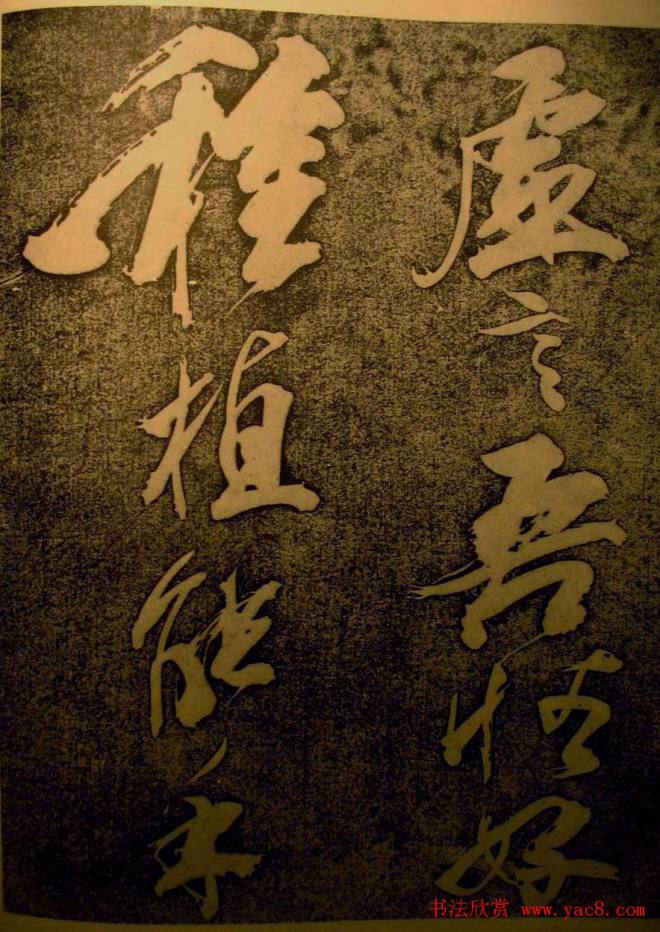 虛言吾性好
種植能手
书法欣赏 www.yac8.com